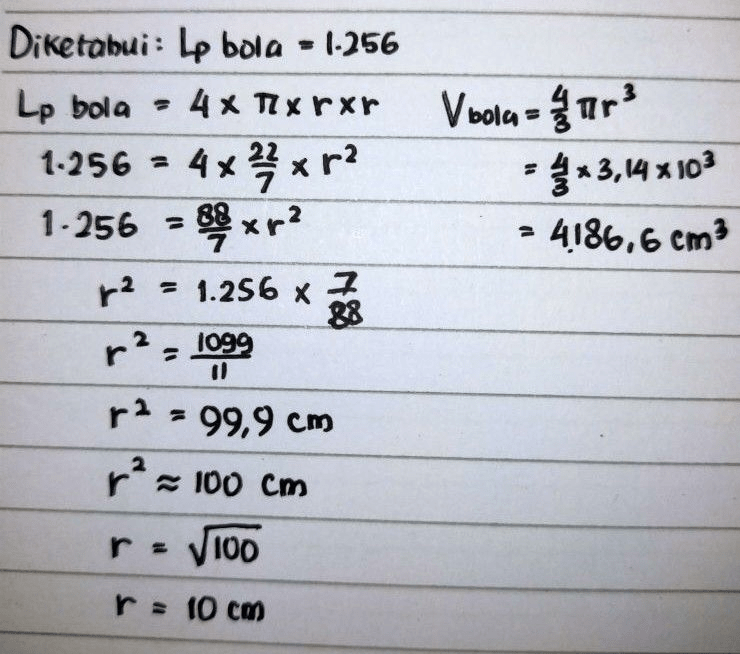 Diketahui: Lp bola = 1.256
Lp bola = 4 × π × r × r
1.256 = 4 × 22/7 × r²
1.256 = 88/7 × r²
r² = 1.256 × 7/88
r² = 1099/11
r² = 99,9 cm
r² ≈ 100 cm
r = √100
r = 10 cm
V bola = 4/3 πr³
= 4/3 × 3,14 × 10³
= 4.186,6 cm³